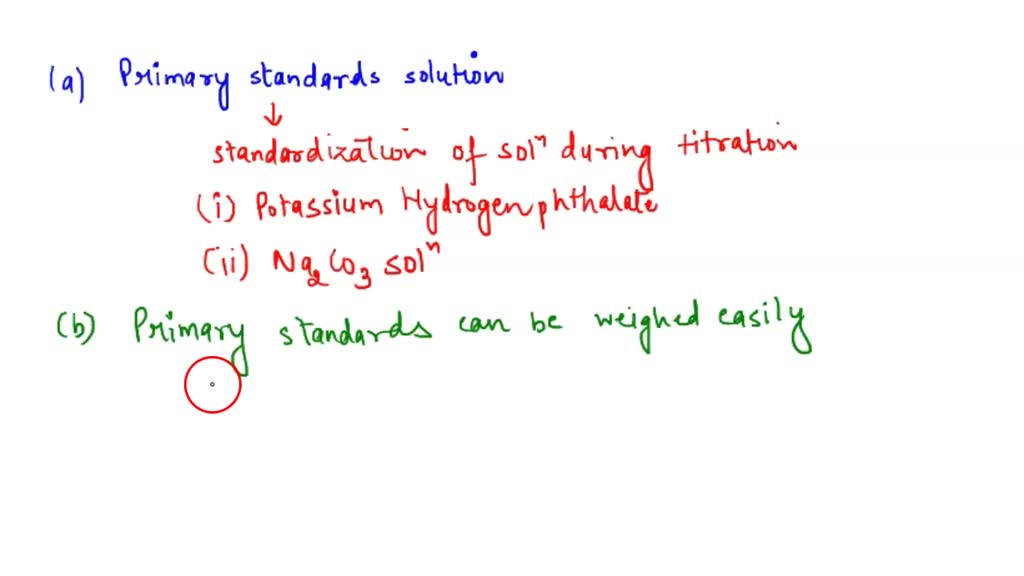 (a) Primary standards solution
↓
standardization of solⁿ during titration
(i) Potassium Hydrogenphthalate
(ii) Na₂CO₃ solⁿ
(b) Primary standards can be weighed easily